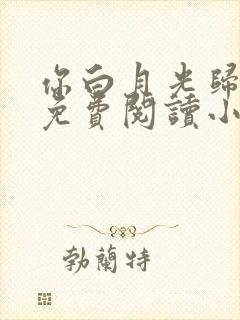 你白月光歸
免費閱讀小
勃蘭特